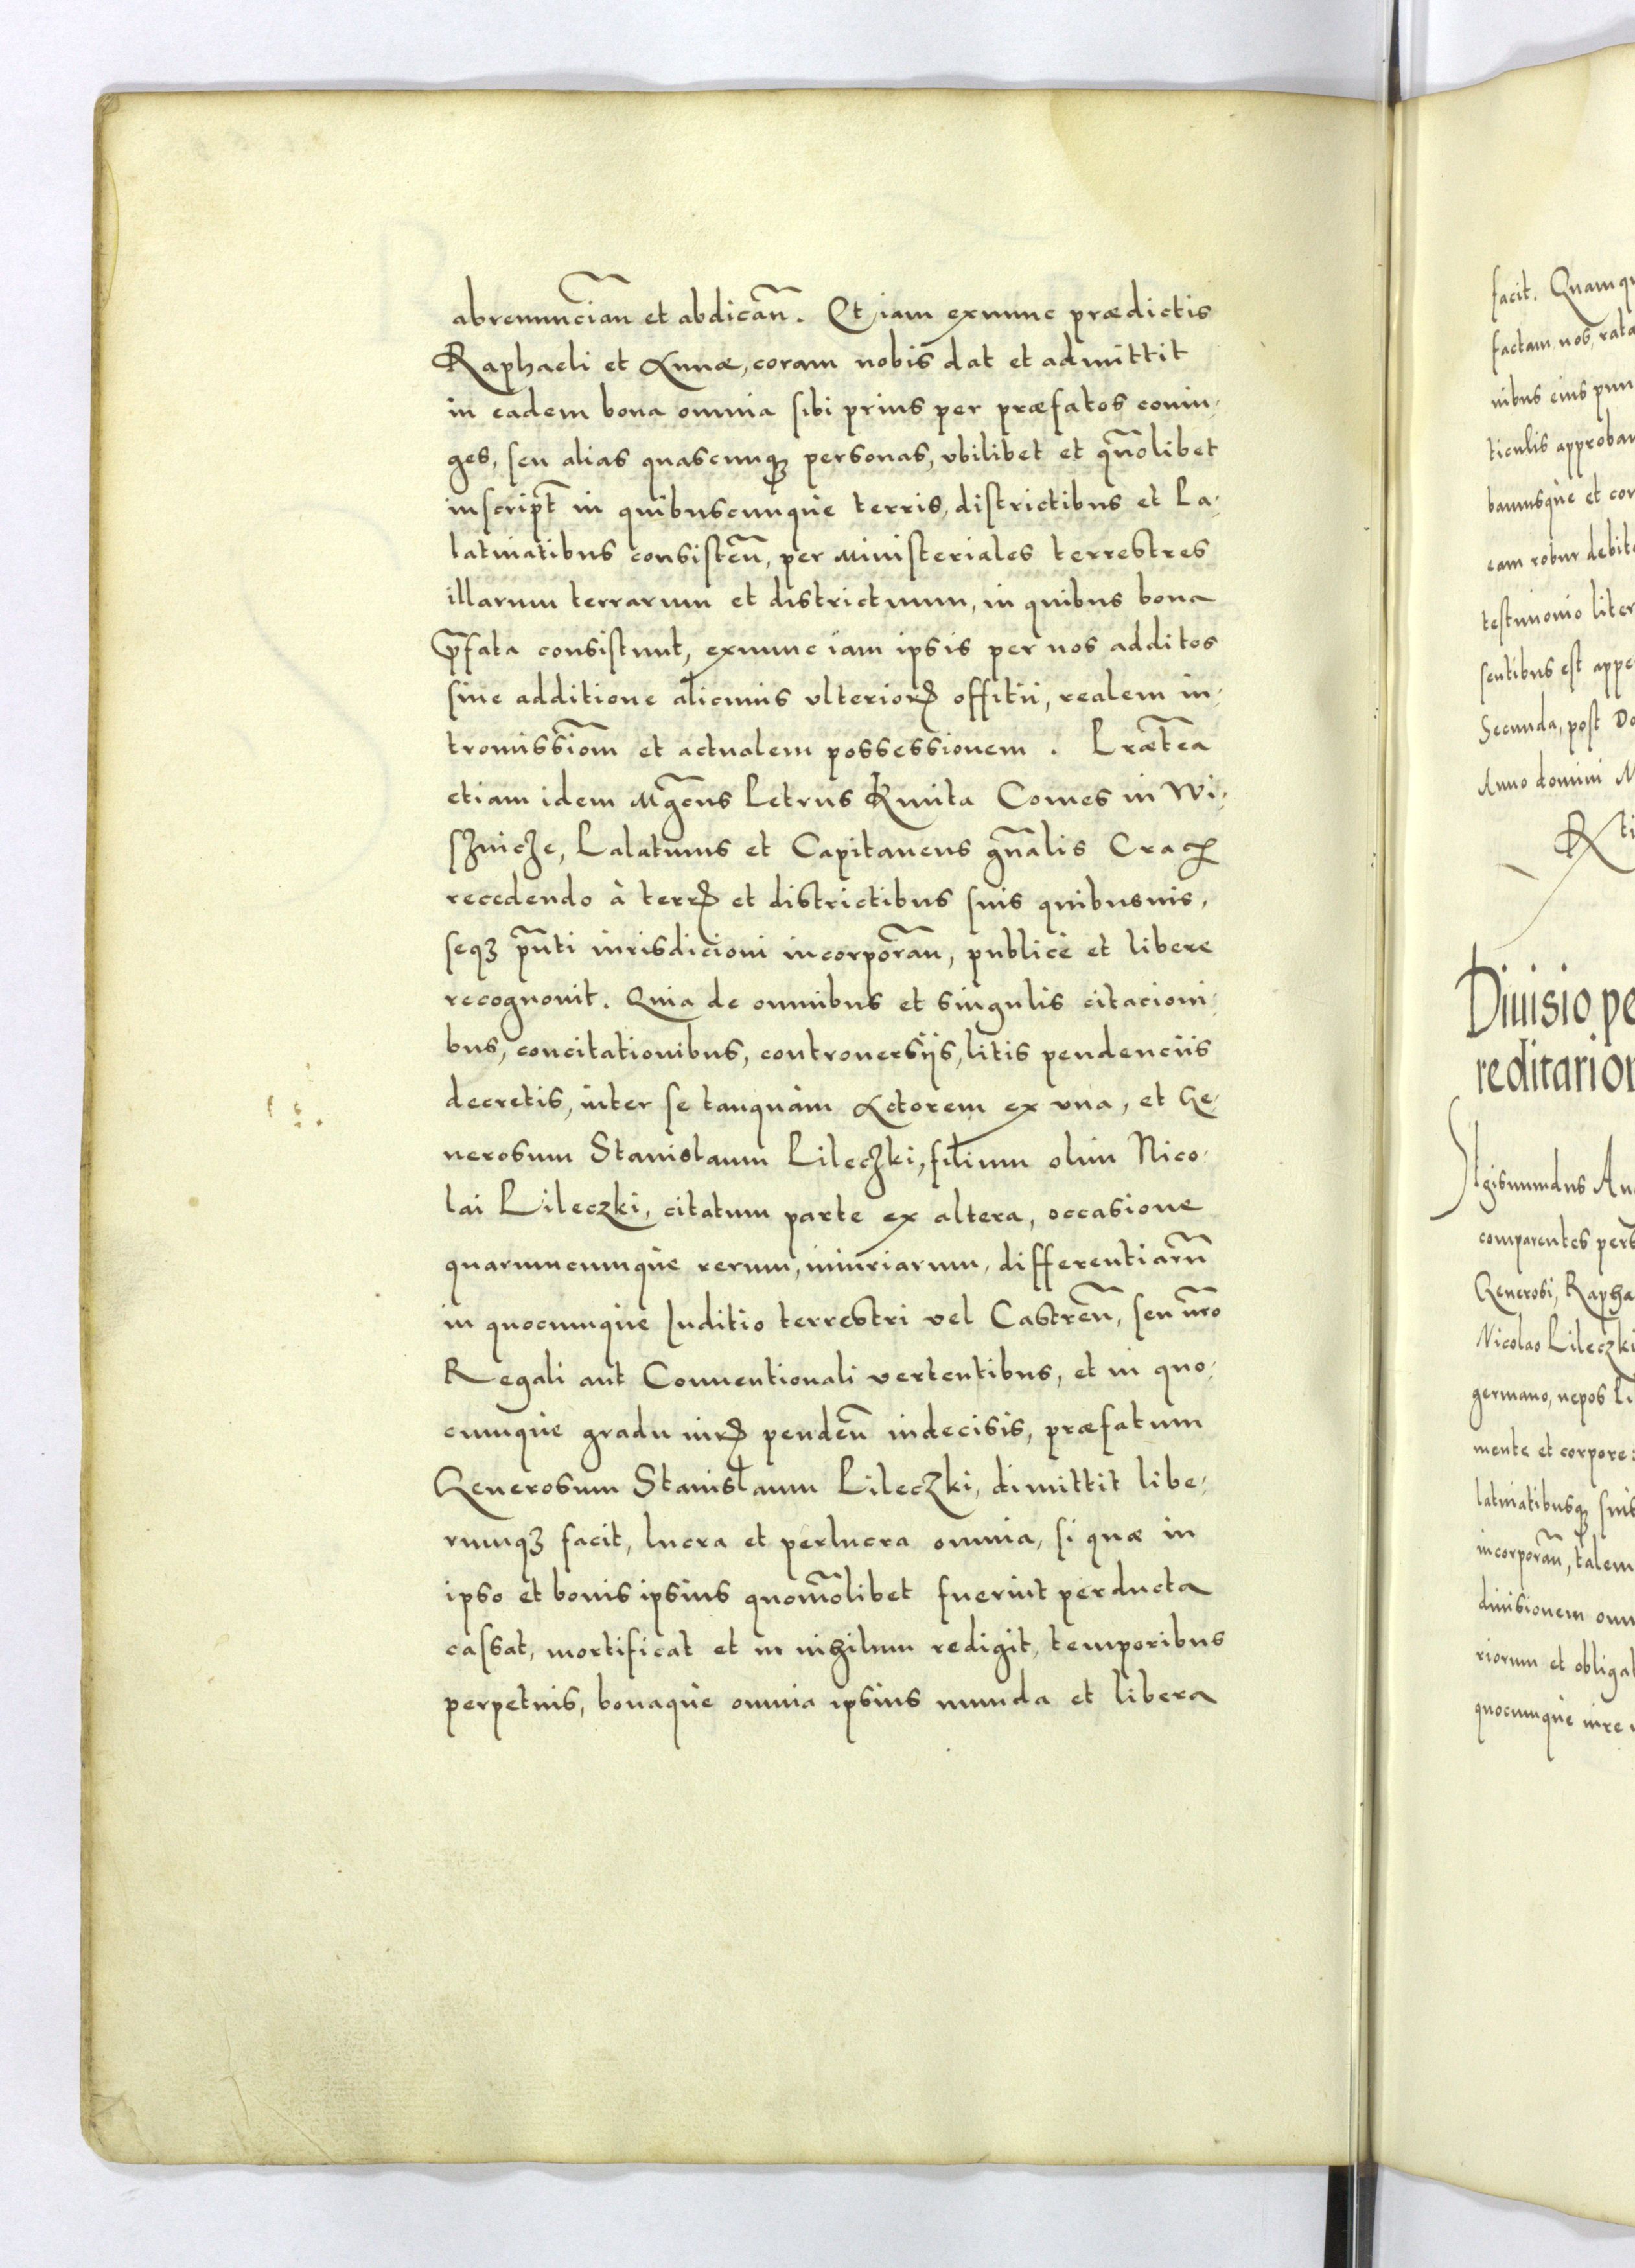 abrenunciañ et abdicañ. Et iam exnunc prædictis
Raphaeli et Annæ, coram nobis dat et admittit
in eadem bona omnia sibi prius per præfatos coniu-
ges, seu alias quascunqꝫ personas, vbilibet et quõlibet
inscript̃ in quibuscunque terris, districtibus et Pa-
latinatibus consisteñ, per Ministeriales terrestres
illarum terrarum et districtuum, in quibus bona
p̃fata consistunt, exnunc iam ipsis per nos additos
sine additione alicuius vlterioꝝ offitii, realem in-
tromissiom̃ et actualem possessionem. Prætea
etiam idem Mg̃cus Petrus Kmita Comes in Wi-
sznicze, Palatinus et Capitaneus gñalis Crac̃
recedendo à terrꝭ et districtibus suis quibusuis,
seqꝫ pñti iurisdicioni incorporañ, publicè et libere
recognouit. Quia de omnibus et singulis citacioni-
bus, concitationibus, controuersijs, litis pendenciis
decretis, inter se tanquàm Actorem ex vna, et Ge-
nerosum Stanislaum Pileczki, filium olim Nico-
lai Pileczki, citatum parte ex altera, occasione
quarumcumque rerum, iniuriarum, differentiarũ
in quocunque Iuditio terrestri vel Castreñ, seu nr̃o
Regali aut Conuentionali vertentibus, et in quo-
cunque gradu iurꝭ pendeñ indecisis, præfatum
Generosum Stanislaum Pileczki, dimittit libe-
rumqꝫ facit, lucra et perlucra omnia, si quæ in
ipso et bonis ipsius quom̃olibet fuerint perducta
cassat, mortificat et in nihilum redigit, temporibus
perpetuis, bonaque omnia ipsius munda et libera
facit. Quamqu
factam nos, rata
nibus eius pun
ticulis approbau
bamusque et con
eam robur debite
testimonio liter
sentibus est appe
Secunda, post Do
Anno domini M
Diuisio pe
reditarior
Sigismundus Au
comparentes pers
Generosi, Rapha
Nicolao Pileczki
germano, nepos Pi
mente et corpore
latinatibusqꝫ suis
incorporañ, talem
diuisionem omn
riorum et obligat
quocunque iure